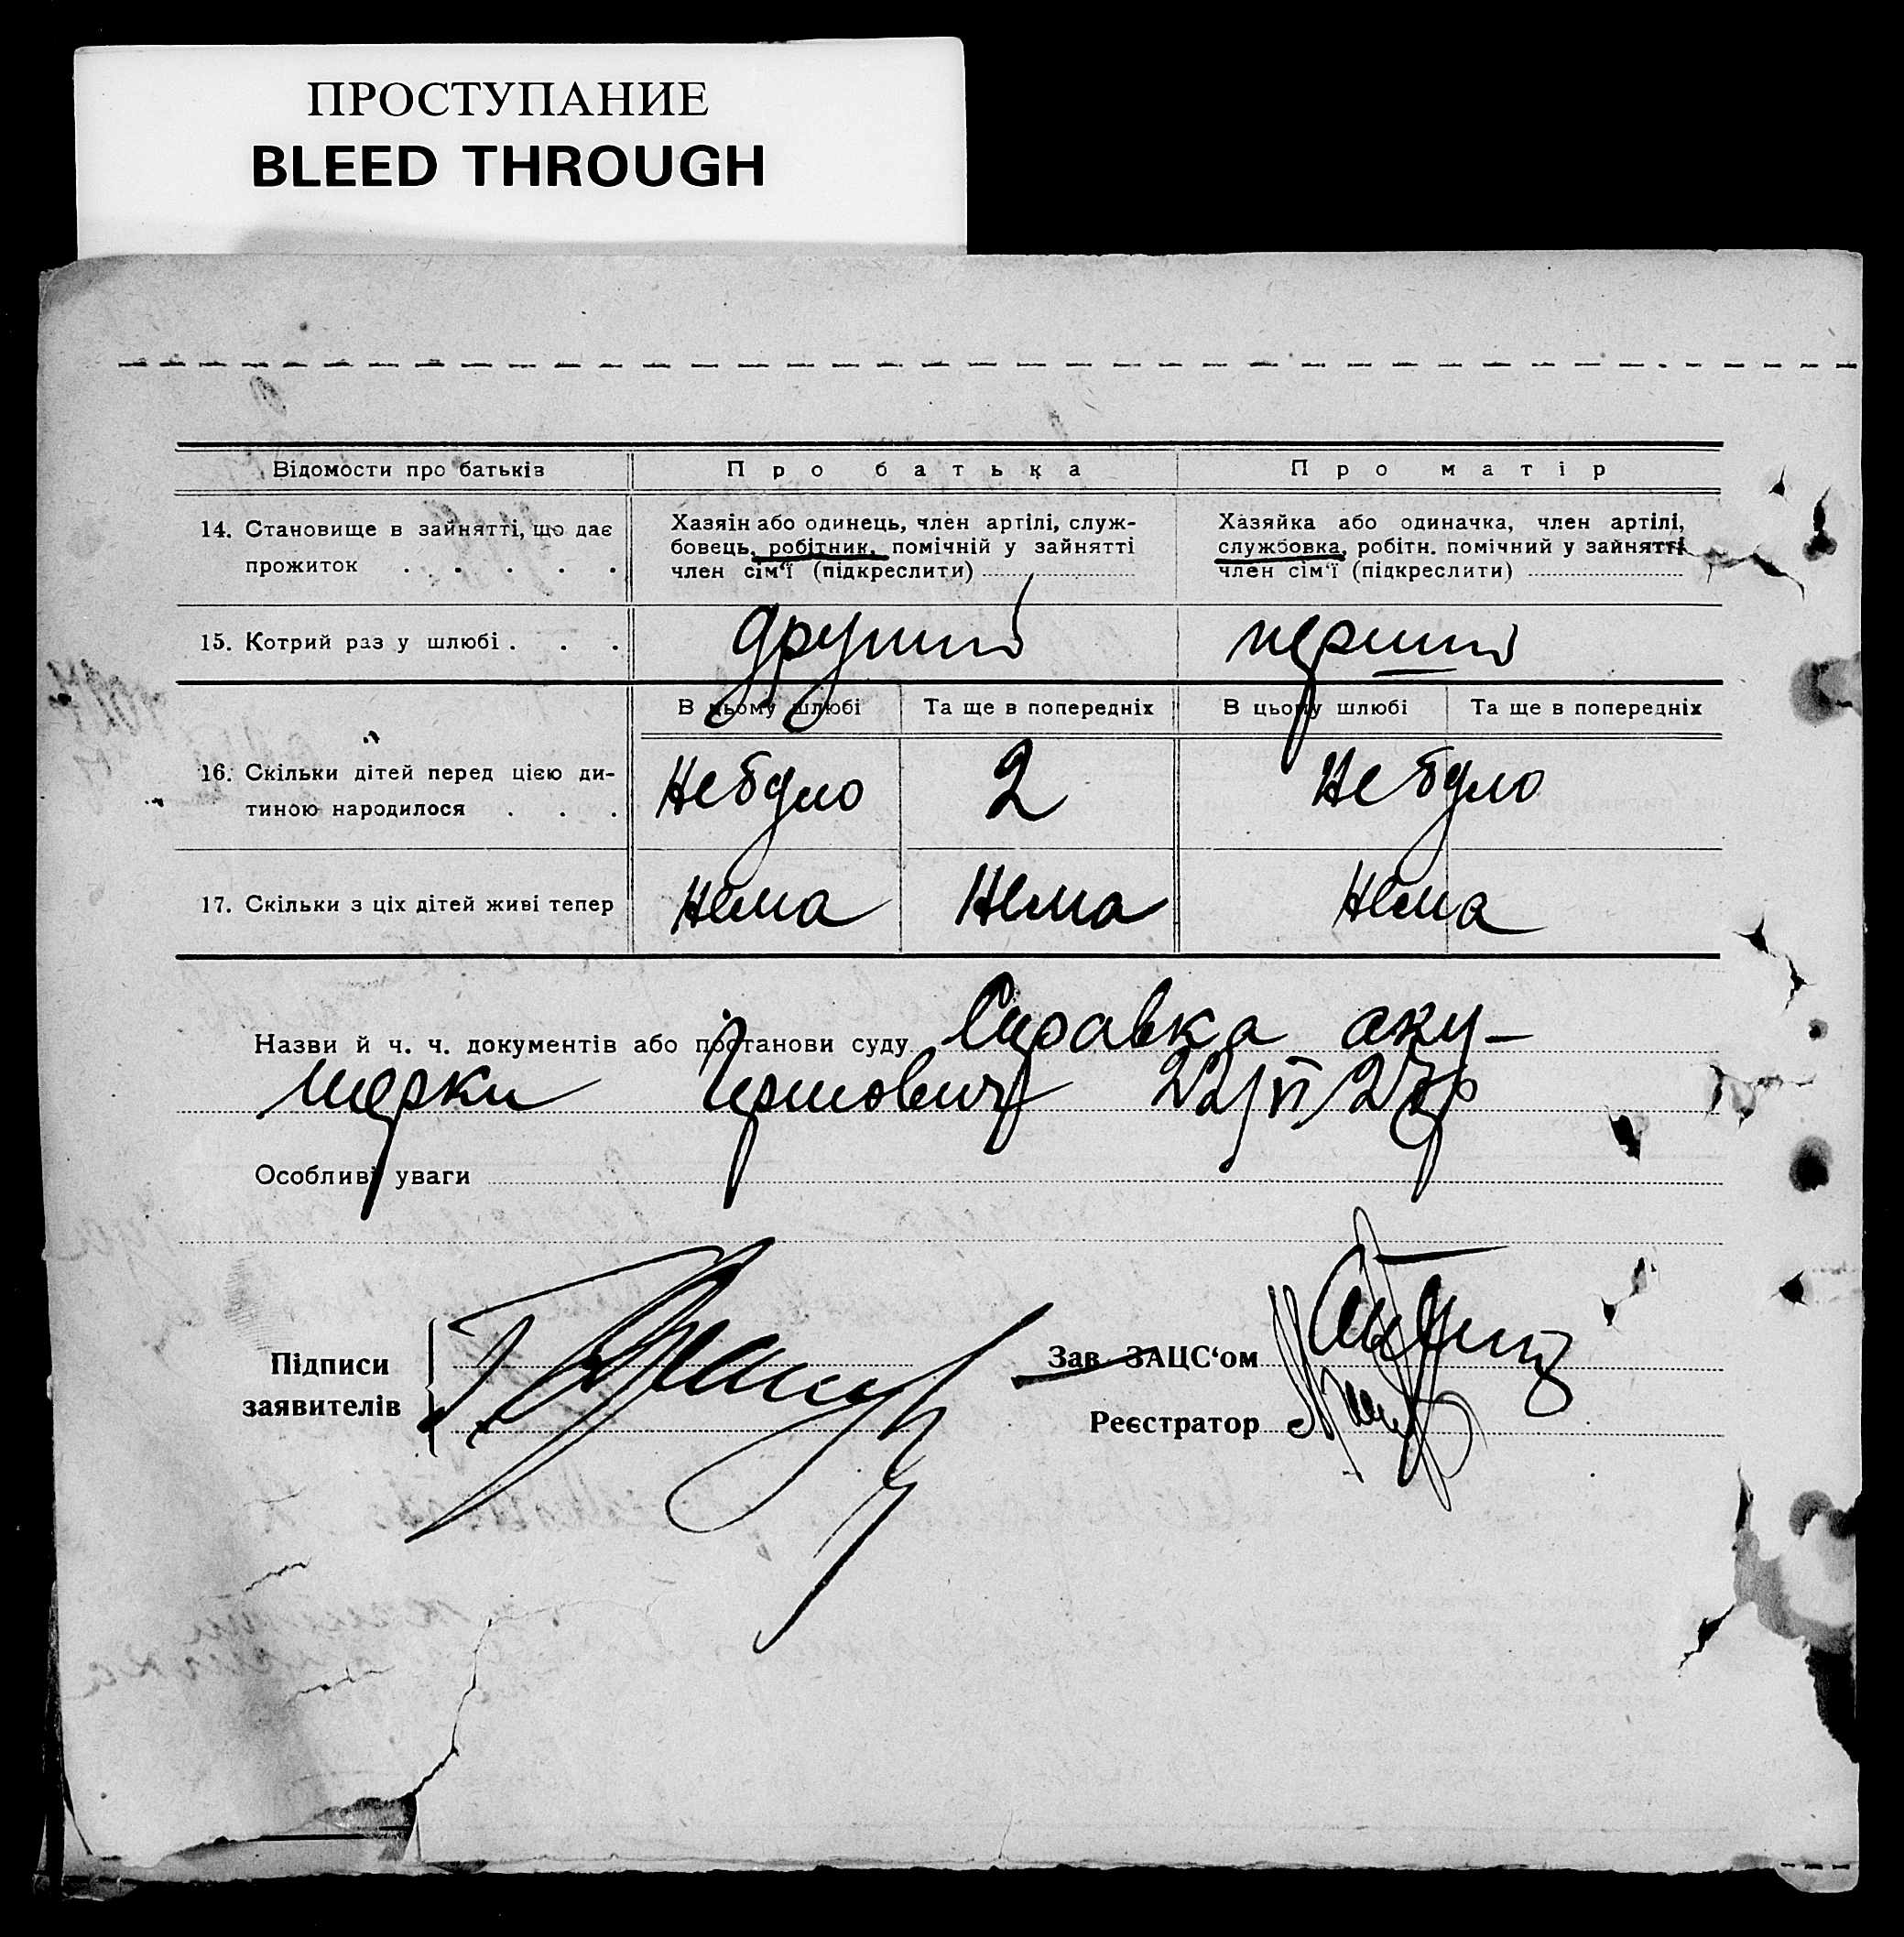 ПРОСТУПАНИЕ
BLEED THROUGH
Відомости про батьків
Про батька
Про матір
14. Становище в зайнятті, що дає
прожиток . . . . .
Хазяін або одинець, член артілі, служ-
бовець, робітник, помічній у зайнятті
член сім'ї (підкреслити)
Хазяйка або одиначка, член артілі,
службовка, робітн. помічний у зайнятті
член сім'ї (підкреслити)
15. Котрий раз у шлюбі . . .
другий
перший
В цьому шлюбі
Та ще в попередніх
В цьому шлюбі
Та ще в попередніх
16. Скільки дітей перед цією ди-
тиною народилося . . .
Не було
2
Не було
17. Скільки з ціх дітей живі тепер
Нема
Нема
Нема
Назви й ч. ч. документів або постанови суду Справка аку-
шерки 22/VI 27р
Особливі уваги
Підписи
заявителів
Зав. ЗАЦС'ом
Реєстратор